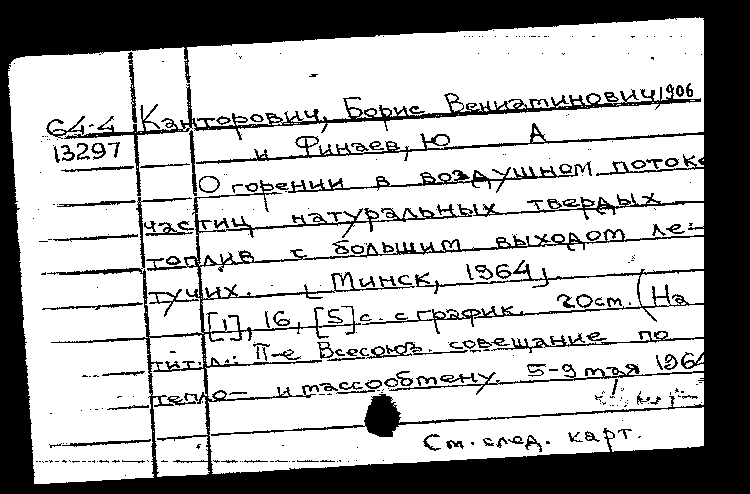 64-4 Канторович, Борис Вениаминович, 1906
13297 и Финаев, Ю А
О горении в воздушном потоке
частиц натуральных твердых
топлив с большим выходом ле-
тучих. [Минск, 1964]
[1], 16, [5] с. с график. 20см. (На
тит. л.: II-е Всесоюз. совещание по
тепло- и массообмену. 5-9 мая 1964
См. след. карт.